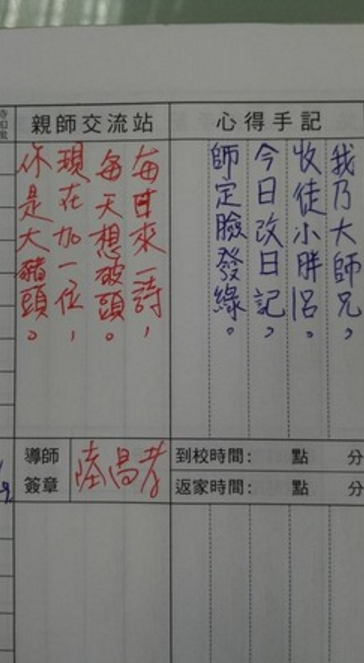 親師交流站
心得手記
我乃大師兄,
收徒小胖呂。
今日改日記,
師定臉發綠。
每日來一詩,
每天想破頭。
現在加一位,
你是大豬頭。
導師
簽章
陸昌孝
到校時間: 點 分
返家時間: 點 分